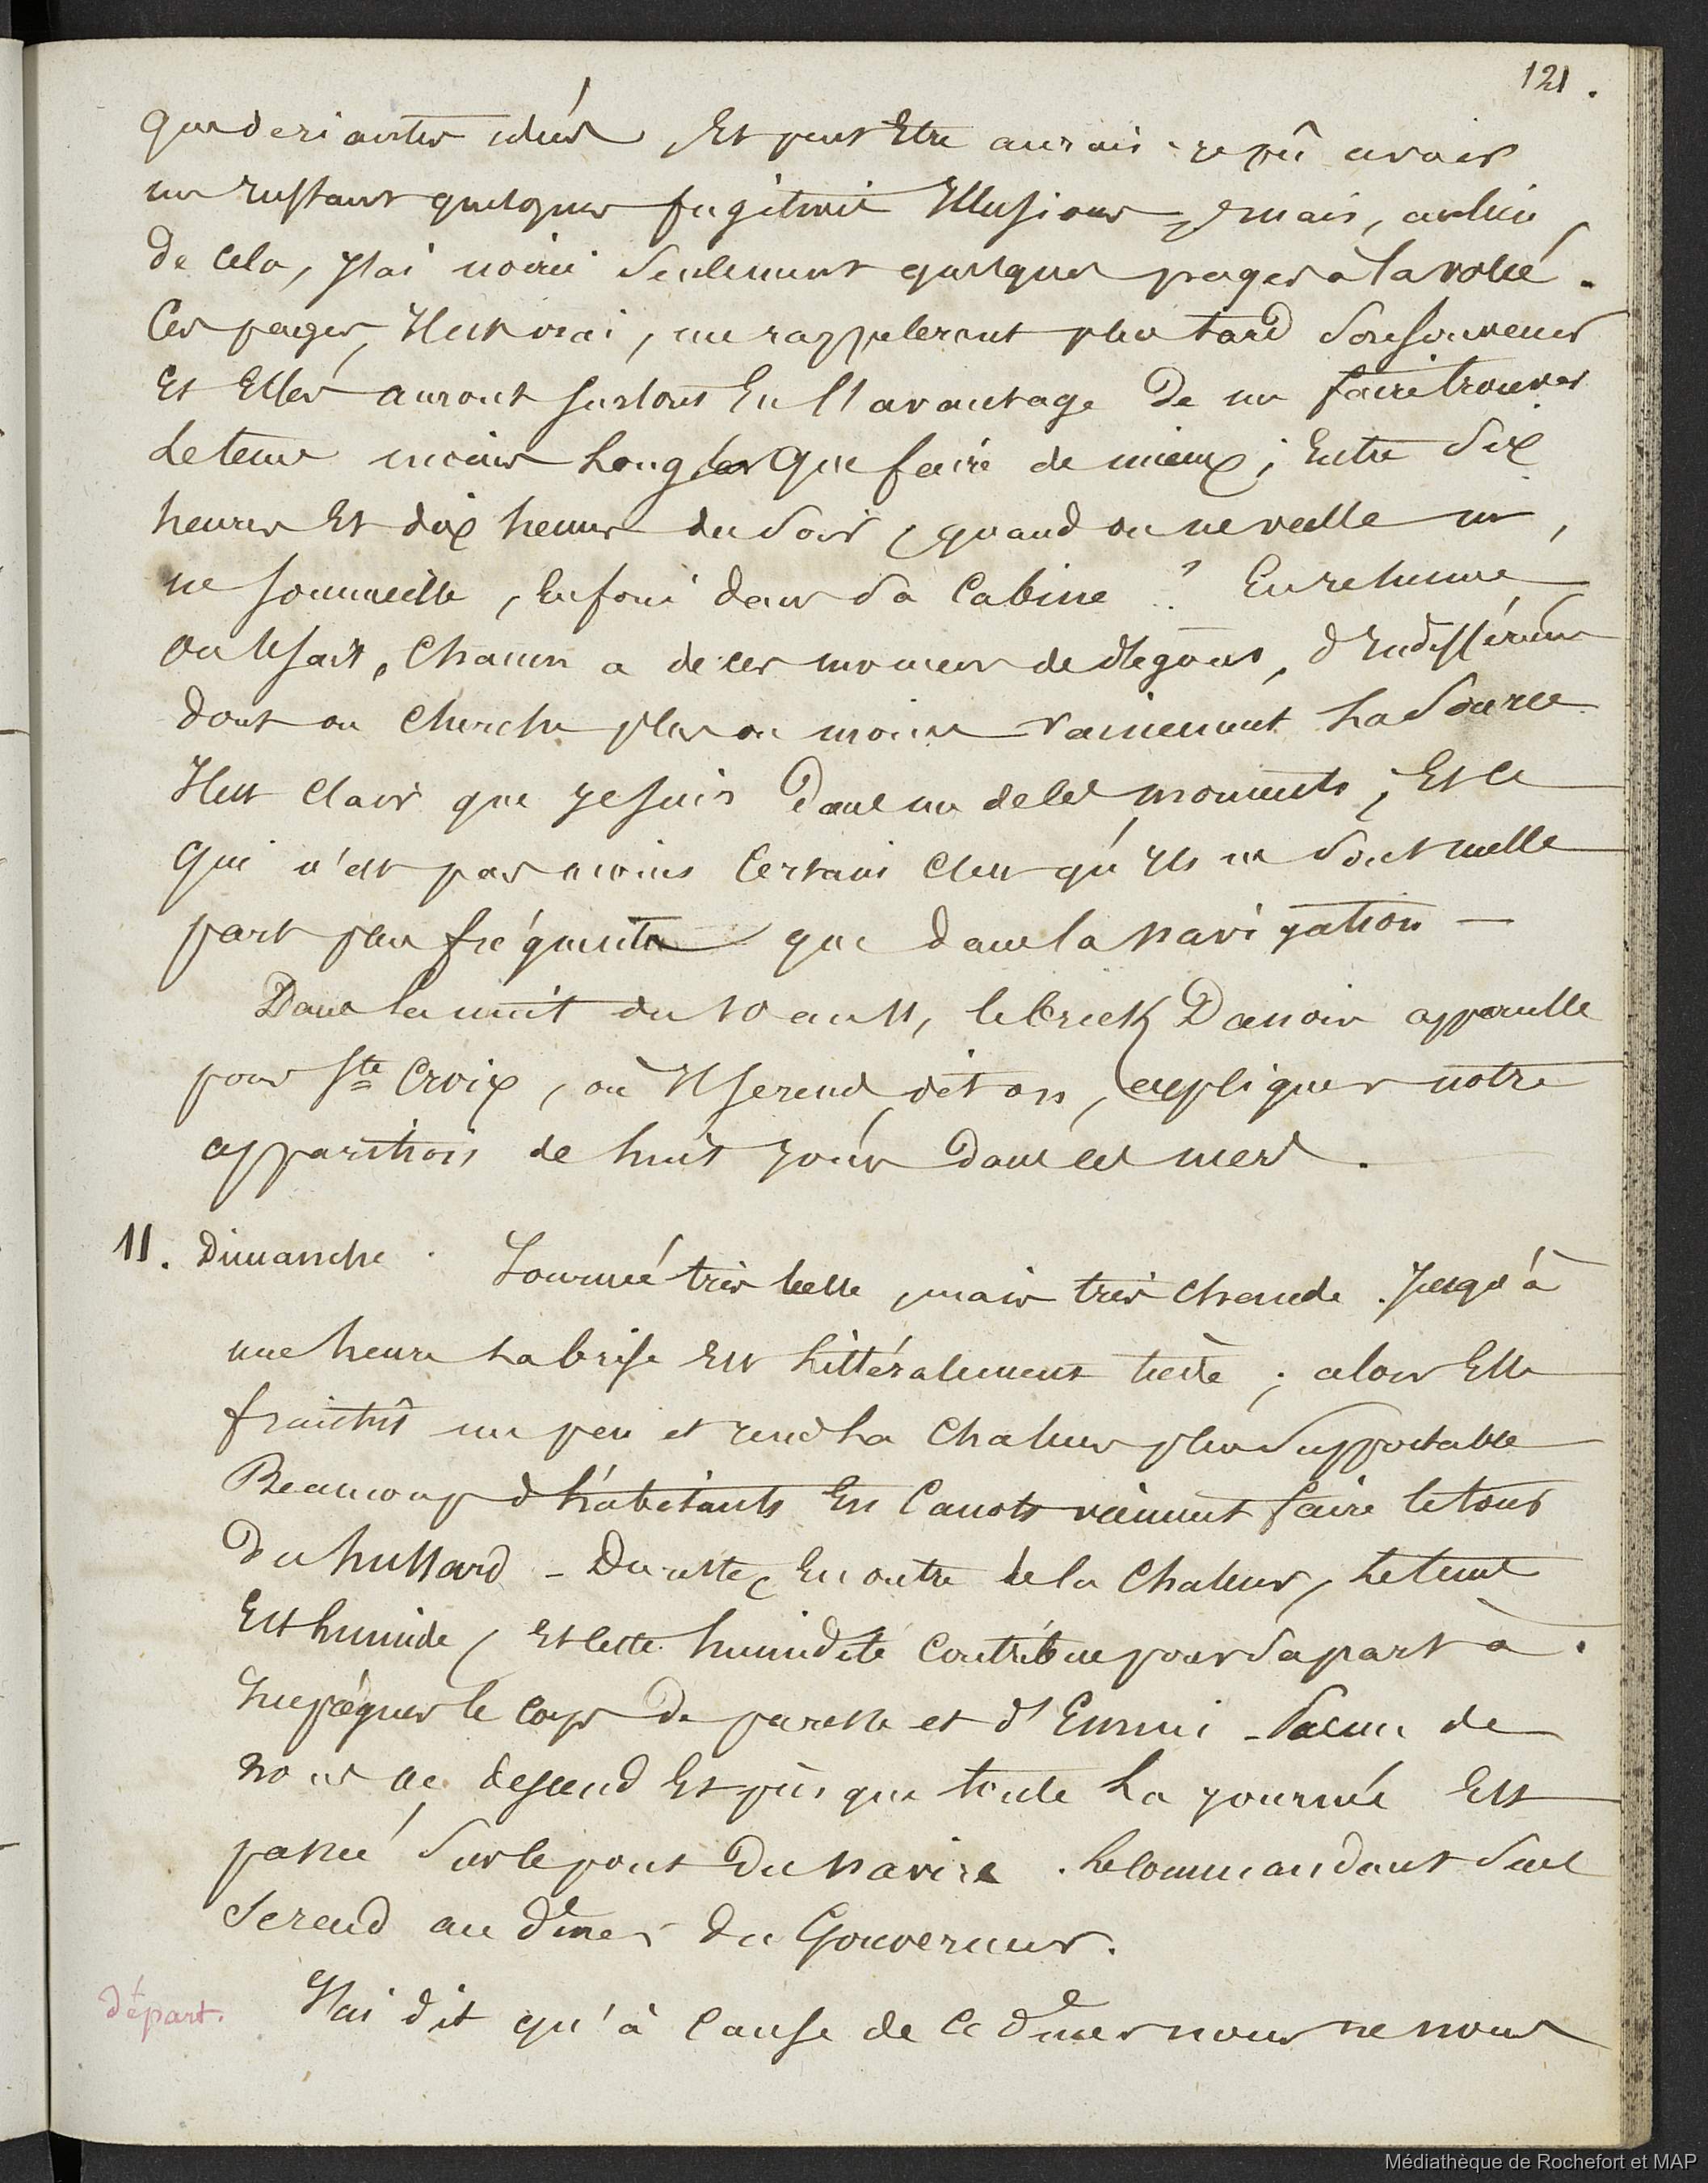 121.
que de riantes idées et peut être aurais-je pû avoir
un instant quelques fugitives illusions, mais, au lieu
de cela, j'ai noirci seulement quelques pages à la volée.
Ces pages, il est vrai, me rappeleront plus tard
et elles auront surtout eu l'avantage de me faire trouver
le tems moins long, car que faire de mieux, entre six
heures et dix heures du soir, quand on ne veille ni,
ne sommeille, enfoui dans sa cabine ? En
on le sait, chacun a de ces momens de dégouts, d'indifférence
dont on cherche plus ou moins vainement la source
Il est clair que je suis dans un de ces moments, et ce
qui n'est pas moins certain c'est qu'ils ne sont nulle
part plus fréquents que dans la navigation —
Dans la nuit du 10 au 11, le brick Danois appareille
pour Ste Croix, où il se rend, dit on, expliquer notre
apparition de huit jours dans ces mers.
11. Dimanche. Journée très belle, mais très chaude. Jusqu'à
une heure la brise est littéralement tiède ; alors elle
fraichit un peu et rend la chaleur plus supportable
Beaucoup d'habitants en canots viennent faire le tour
du hussard - Du reste, en outre de la chaleur, le tems
est humide, et cette humidité contribue pour sa part à
imprégner le corps de paresse et d'ennui - aucun de
nous ne descend et puis que toute la journée est
passée sur le pont du navire. Le Commandant seul
se rend au dîner du Gouverneur.
départ. J'ai dit qu'à cause de ce dîner nous ne nous
Médiathèque de Rochefort et MAP